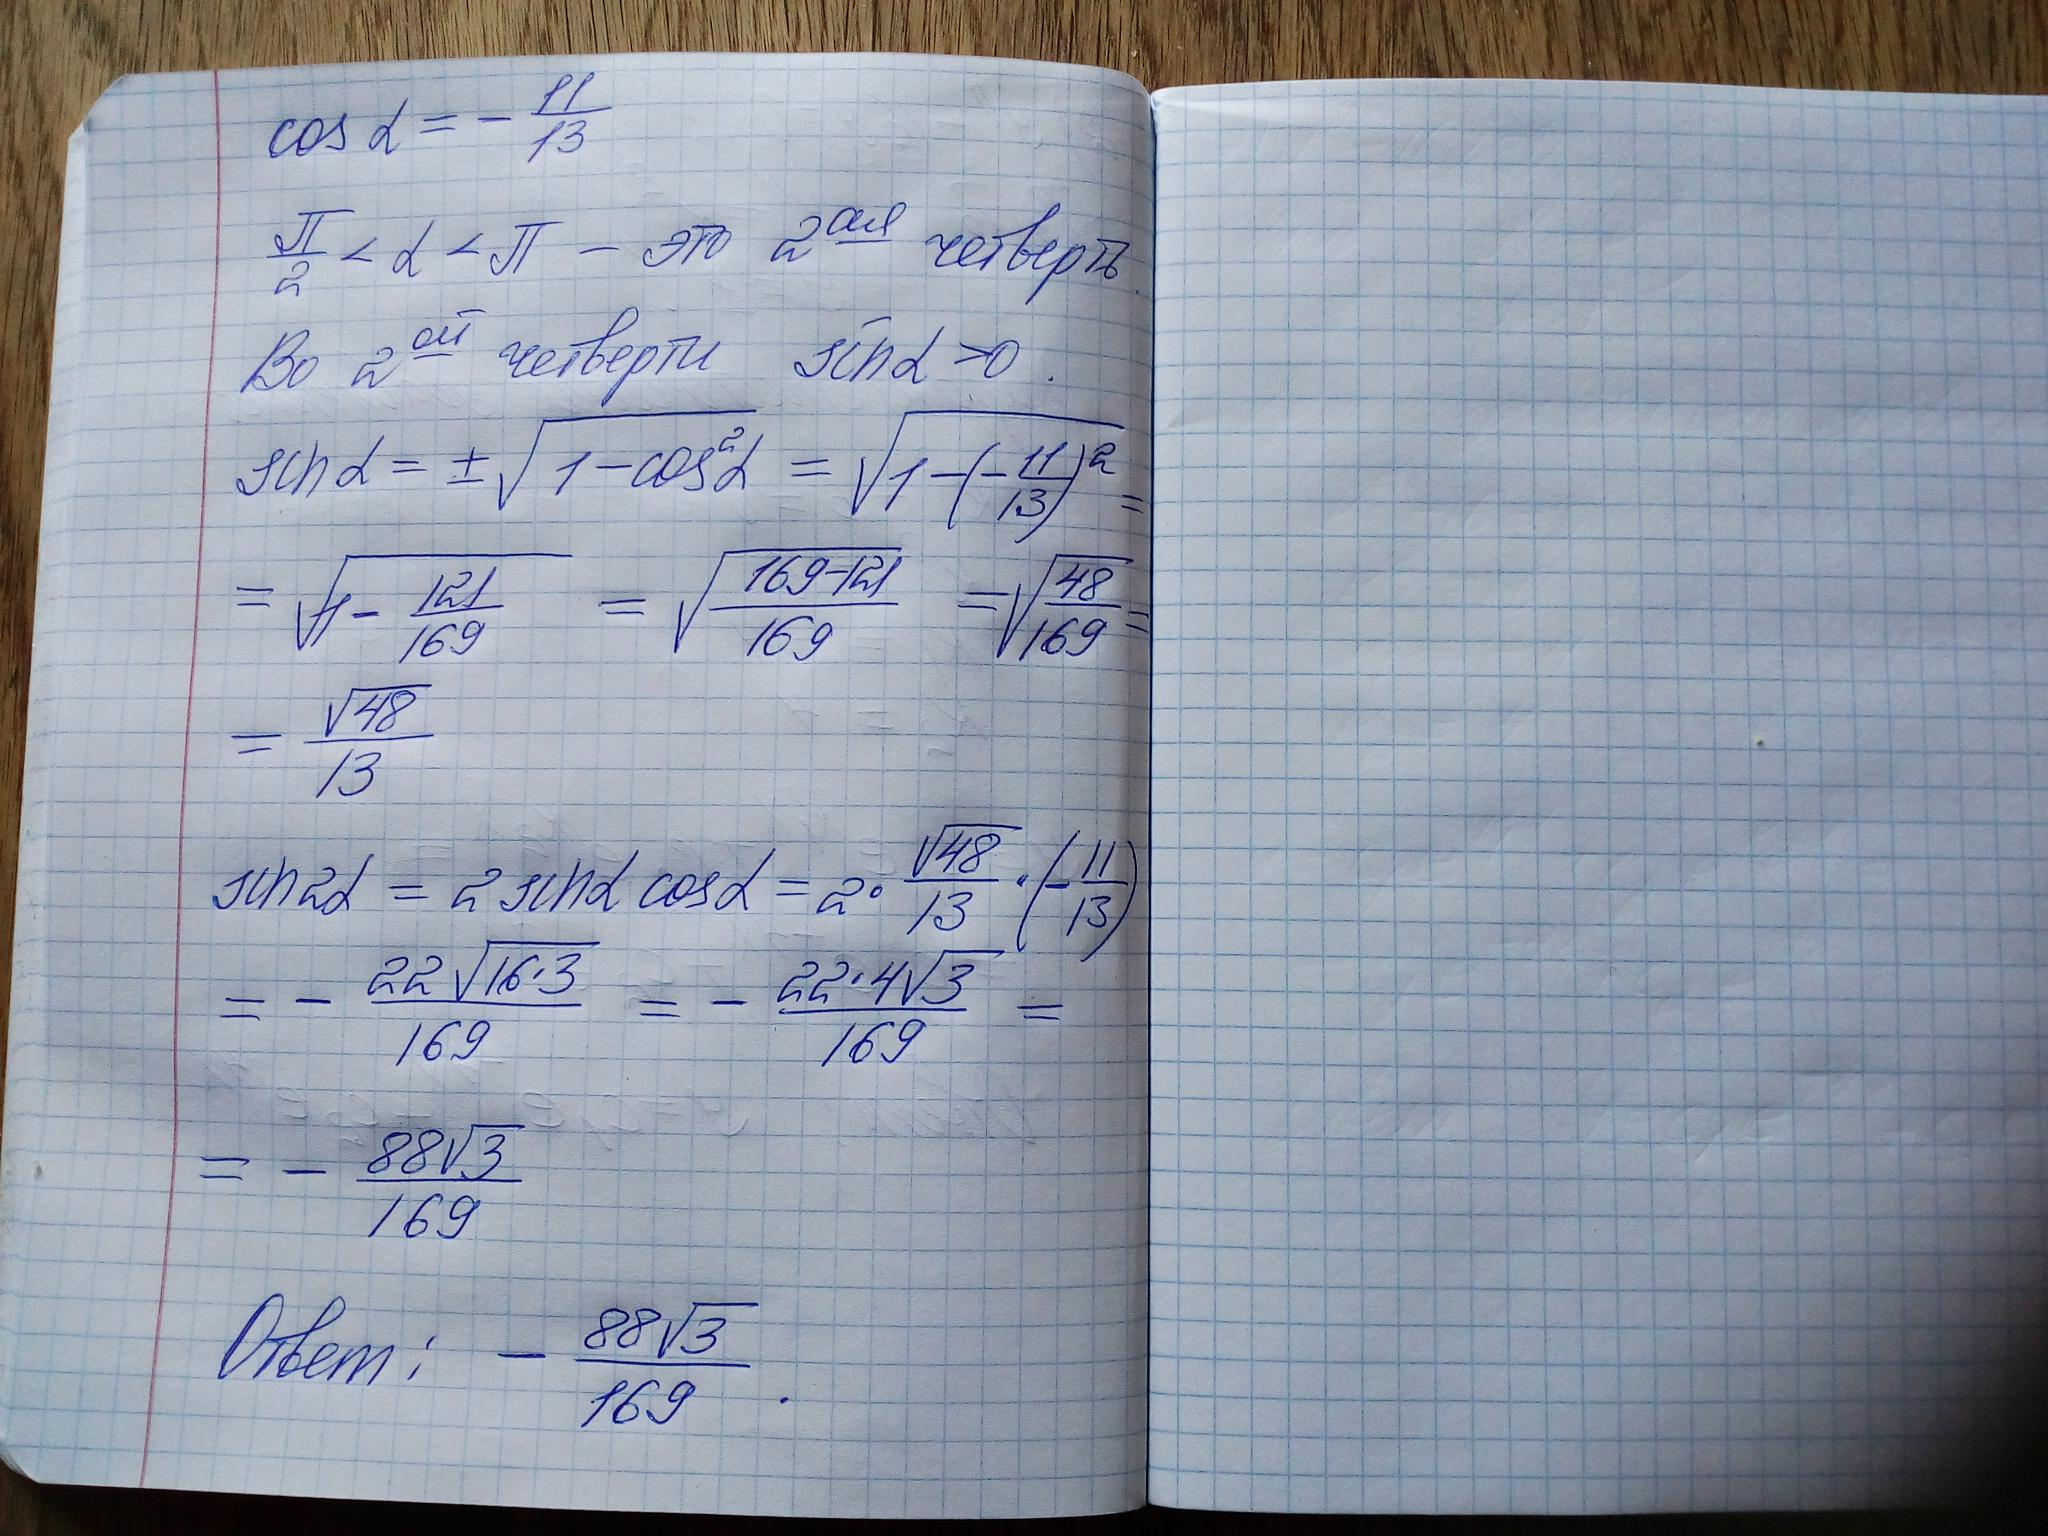 cos α = - 11/13
π/2 < α < π - это 2ая четверть.
Во 2ой четверти sin α > 0.
sin α = ±√(1 - cos²α) = √(1 - (- 11/13)²) =
= √(1 - 121/169) = √((169 - 121)/169) = √(48/169) =
= √48/13
sin 2α = 2 sin α cos α = 2 · √48/13 · (- 11/13)
= - 22√(16·3)/169 = - 22·4√3/169 =
= - 88√3/169
Ответ: - 88√3/169.